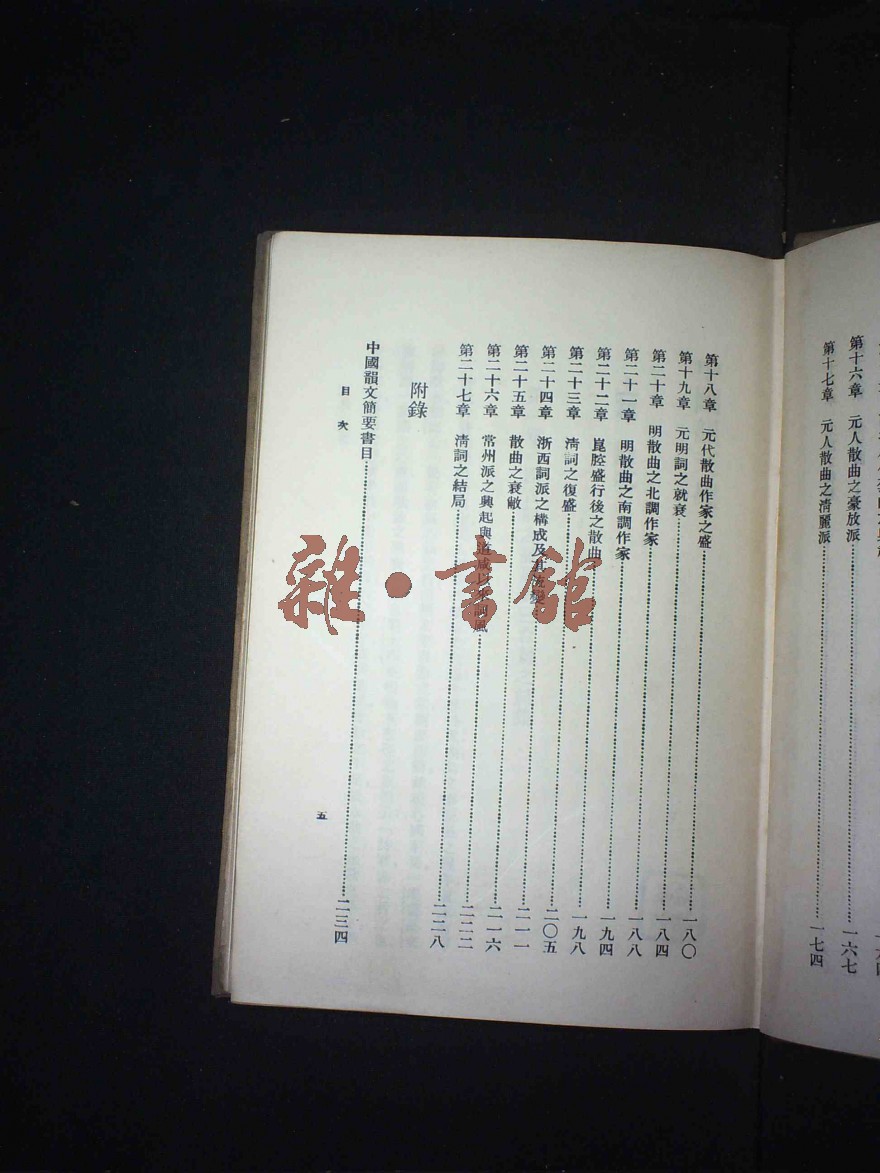 第十六章　元人散曲之豪放派……一六七
第十七章　元人散曲之清麗派……一七四
第十八章　元代散曲作家之盛……一八〇
第十九章　元明詞之就衰……一八四
第二十章　明散曲之北調作家……一八八
第二十一章　明散曲之南調作家……一九四
第二十二章　崑腔盛行後之散曲……一九八
第二十三章　清詞之復盛……二〇五
第二十四章　浙西詞派之構成及其流變……二一一
第二十五章　散曲之衰敝……二一六
第二十六章　常州派之興起與道咸以來詞風……二二二
第二十七章　清詞之結局……二二八
附錄
中國韻文簡要書目……二三四
目次
五
雜·書館